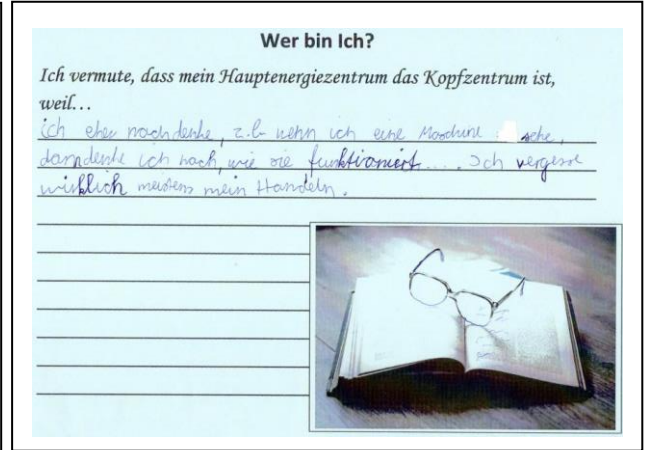 Wer bin Ich?
Ich vermute, dass mein Hauptenergiezentrum das Kopfzentrum ist,
weil...
ich eher nachdenke, z.b wenn ich eine Maschine sehe,
dann denke ich nach, wie sie funktioniert.... Ich vergesse
wirklich meistens mein Handeln.